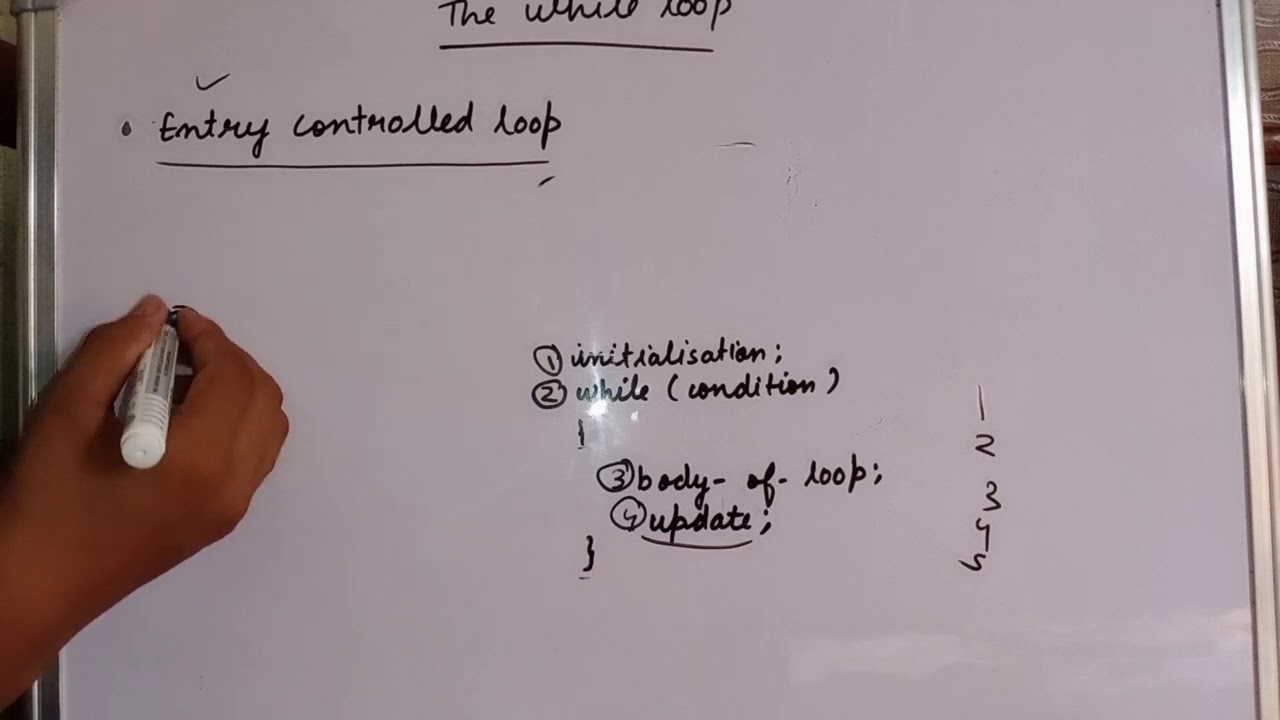 The while loop
• Entry controlled loop
① initialisation;
② while (condition)
{
③ body-of-loop;
④ update;
}
1
2
3
4
5